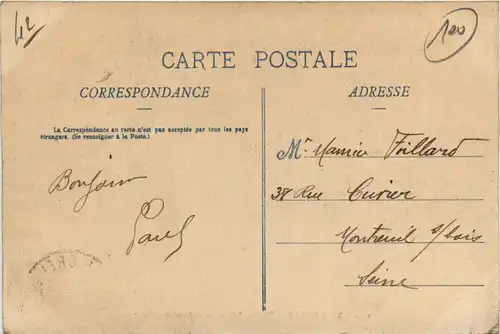 42
100
CARTE POSTALE
CORRESPONDANCE
ADRESSE
La Correspondance au verso n'est pas acceptée par tous les pays
étrangers. (Se renseigner à la Poste.)
Bonjour
Paul
Mr Maurice Foillard
38 Rue Cuvier
Montreuil s/bois
Seine